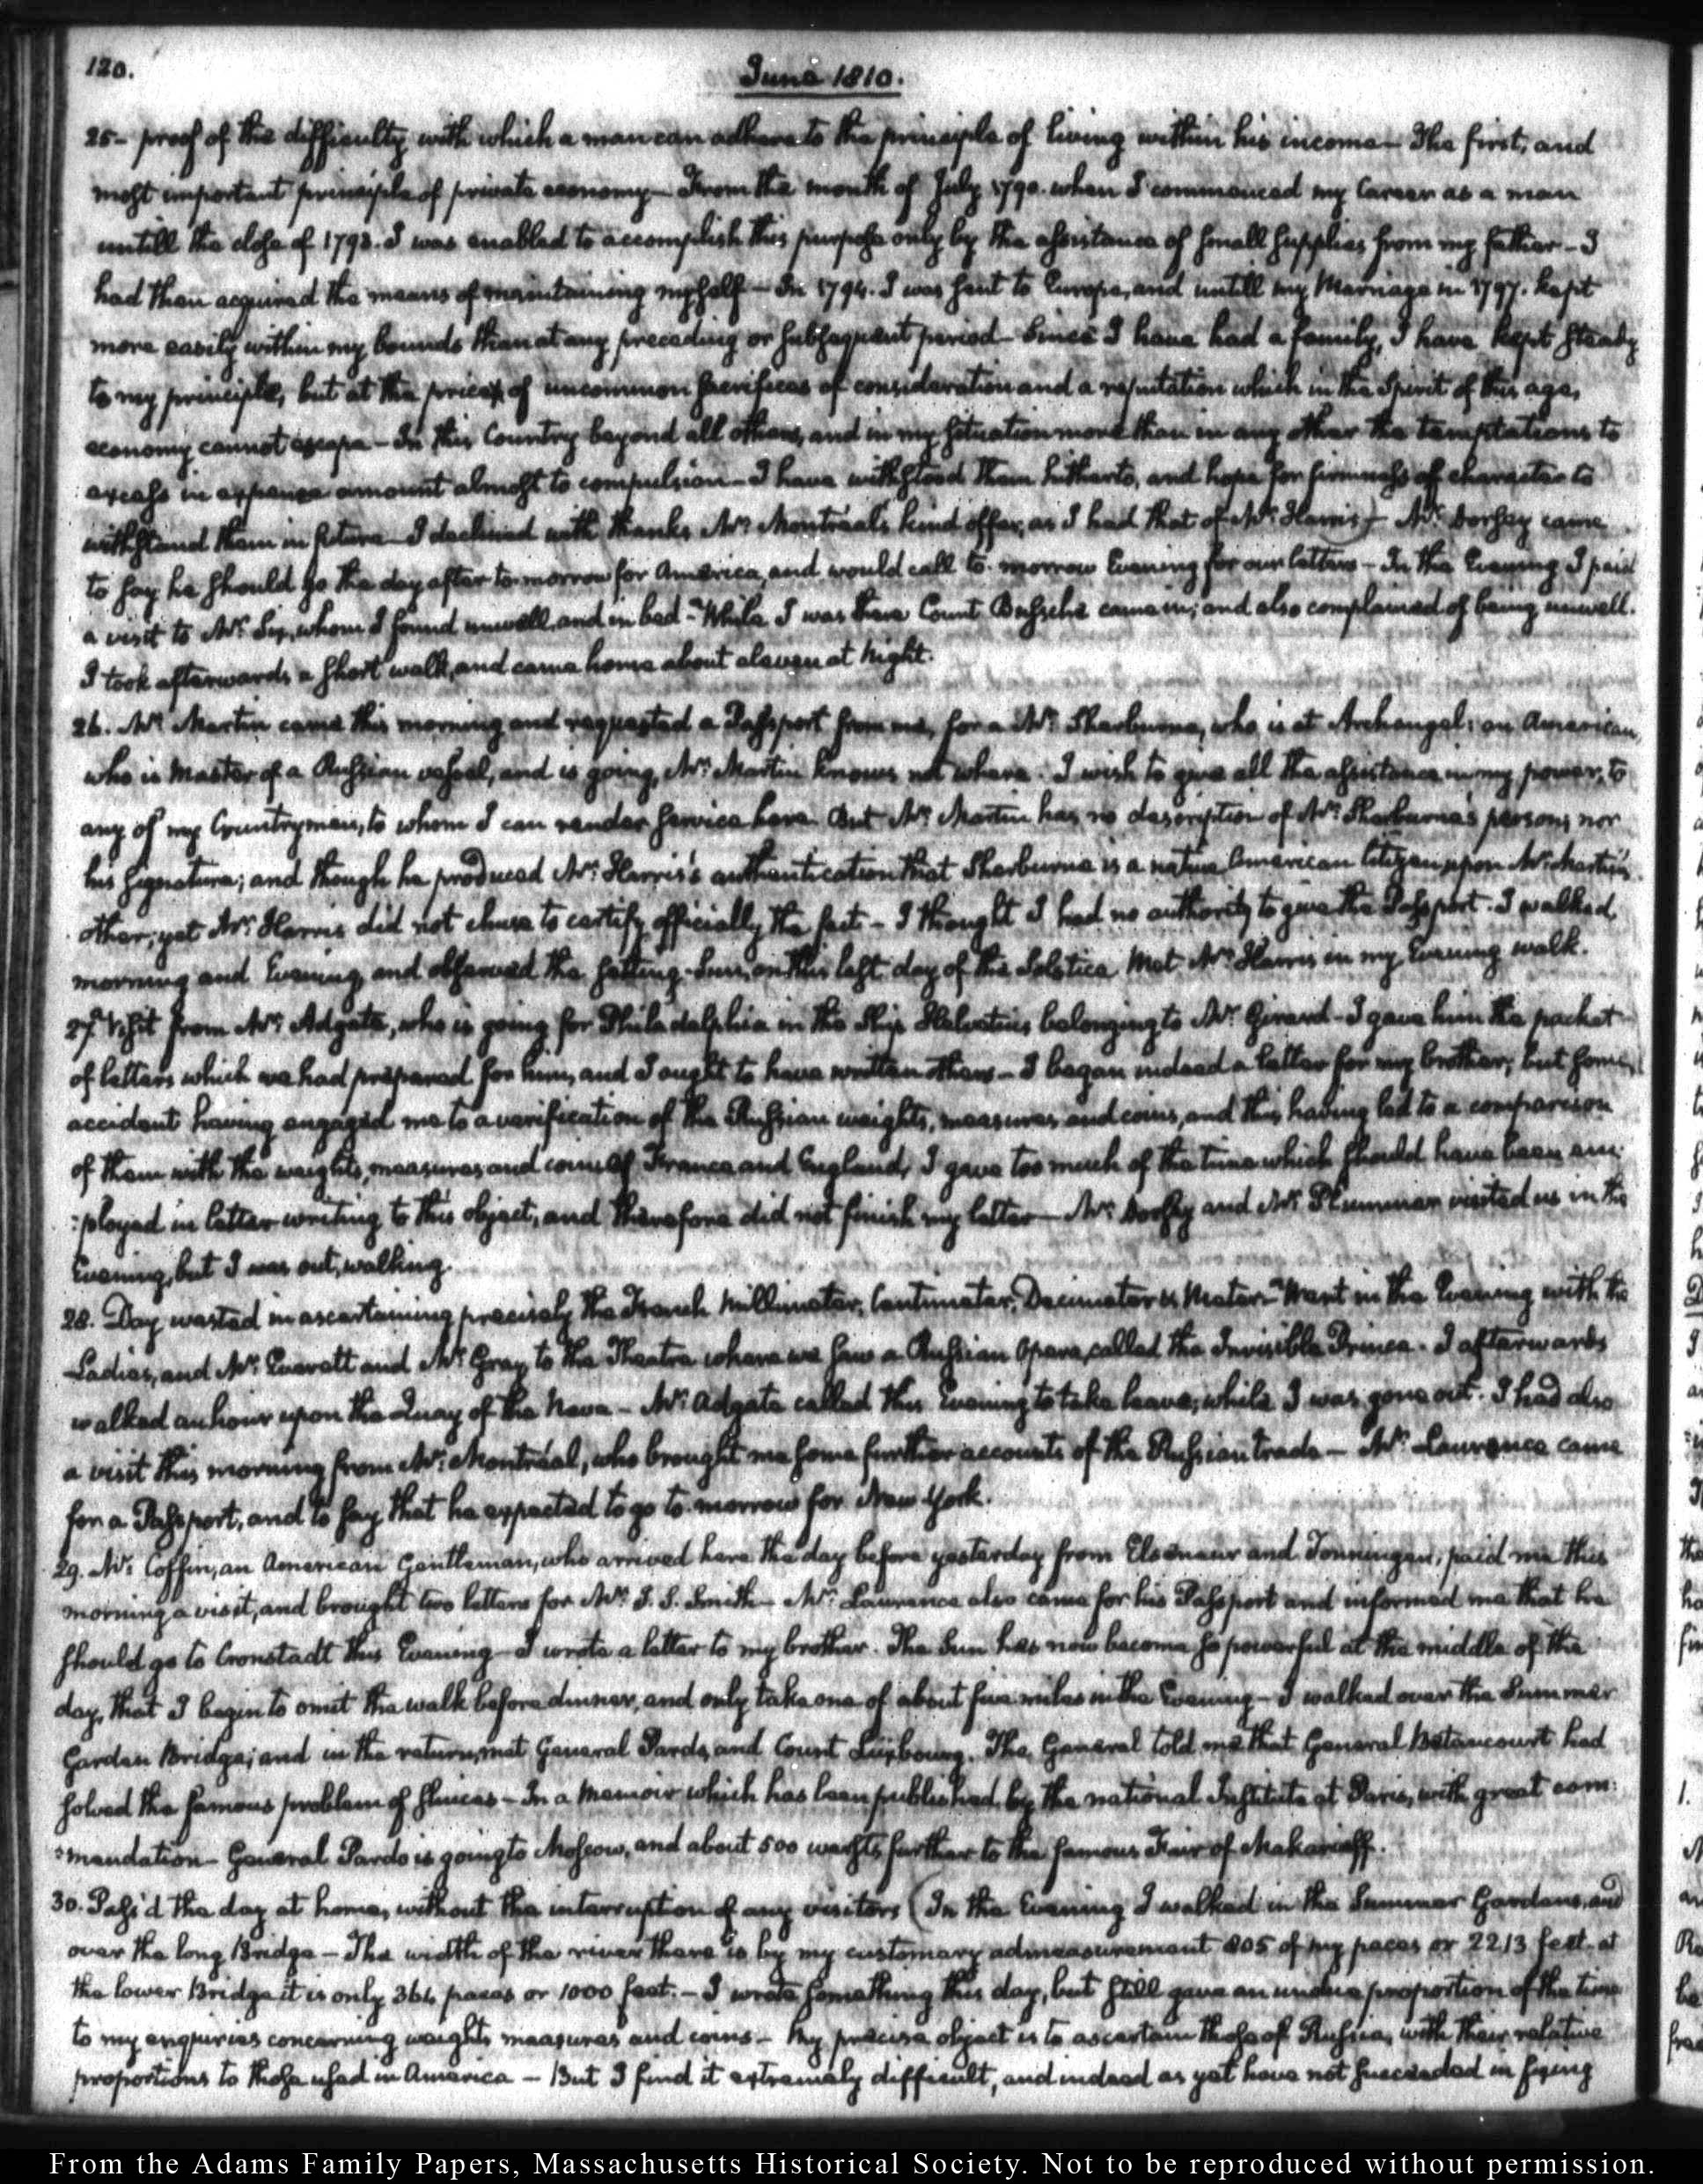 120.
June 1810.
25- proof of the difficulty with which a man can adhere to the principle of living within his income— The first, and
most important principle of private economy— From the month of July 1790. when I commenced my Career as a man
untill the close of 1793. I was enabled to accomplish this purpose only by the assistance of small supplies from my father— I
had then acquired the means of maintaining myself— In 1794. I was sent to Europe, and untill my Marriage in 1797. kept
more easily within my bounds than at any preceding or subsequent period— Since I have had a family, I have kept steady
to my principle, but at the price of uncommon sacrifices of consideration and a reputation which in the Spirit of this age,
economy cannot escape— In this Country beyond all others, and in my situation more than in any other the temptations to
excess in expence amount almost to compulsion— I have withstood them hitherto, and hope for firmness of character to
withstand them in future— I declined with thanks Mr. Montréal's kind offer, as I had that of Mr. Harris— Mr. Dorsey came
to say he should go the day after to-morrow for America, and would call to-morrow Evening for our letters— In the Evening I paid
a visit to Mr. Six, whom I found unwell, and in bed— While I was there Count Bussche came in; and also complained of being unwell.
I took afterwards a short walk, and came home about eleven at Night.
26. Mr. Martin came this morning and requested a Passport from me, for a Mr. Sherburne, who is at Archangel: an American,
who is Master of a Russian vessel, and is going, Mr. Martin knows not where. I wish to give all the assistance in my power, to
any of my Countrymen, to whom I can render service here. But Mr. Martin has no description of Mr. Sherburne's person, nor
his signature; and though he produced Mr. Harris's authentication that Sherburne is a native American Citizen, upon Mr. Martin's
other, yet Mr. Harris did not chuse to certify officially the fact— I thought I had no authority to give the Passport. I walked
morning and Evening, and observed the setting-Sun, on this last day of the Solstice. Met Mr. Harris in my Evening walk.
27. Visit from Mr. Adgate, who is going for Philadelphia in the Ship Helvetius belonging to Mr. Girard— I gave him the packet
of letters which we had prepared for him, and I ought to have written others— I began indeed a letter for my brother; but some
accident having engaged me to a verification of the Russian weights, measures and coins, and this having led to a comparison
of them with the weights, measures and coins of France and England, I gave too much of the time which should have been em-
:ployed in letter-writing to this object, and therefore did not finish my letter— Mr. Dorsey and Mr. Plummer visited us in the
Evening, but I was out, walking.
28. Day wasted in ascertaining precisely the French Millimeter, Centimeter, Decimeter & Meter— Went in the Evening with the
Ladies, and Mr. Everett and Mr. Gray to the Theatre where we saw a Russian Opera, called the Invisible Prince. I afterwards
walked an hour upon the Quay of the Neva— Mr. Adgate called this Evening to take leave, while I was gone out. I had also
a visit this morning from Mr. Montréal, who brought me some further accounts of the Russian trade— Mr. Lawrence came
for a Passport, and to say that he expected to go to-morrow for New-York.
29. Mr. Coffin, an American Gentleman, who arrived here the day before yesterday from Elsineur and Tonningen, paid me this
morning a visit, and brought two letters for Mr. S. Smith— Mr. Lawrence also came for his Passport and informed me that he
should go to Cronstadt this Evening— I wrote a letter to my brother. The Sun has now become so powerful at the middle of the
day, that I begin to omit the walk before dinner, and only take one of about five miles in the Evening— I walked over the Summer
Garden Bridge; and in the return, met General Pardo, and Count Luxbourg. The General told me that General Betancourt had
solved the famous problem of sluices— In a Memoir which has been published by the national Institute at Paris, with great com:
:mendation— General Pardo is going to Moscow, and about 500 wersts further to the famous Fair of Makarieff.
30. Pass'd the day at home, without the interruption of any visitors (In the Evening I walked in the Summer Gardens, and
over the long Bridge— The width of the river there is by my customary admeasurement 805 of my paces or 2213 feet. at
the lower Bridge it is only 364 paces or 1000 feet.— I wrote something this day, but still gave an undue proportion of the time
to my enquiries concerning weights measures and coins— My precise object is to ascertain those of Russia, with their relative
proportions to those used in America— But I find it extremely difficult, and indeed as yet have not succeeded in fixing
From the Adams Family Papers, Massachusetts Historical Society. Not to be reproduced without permission.